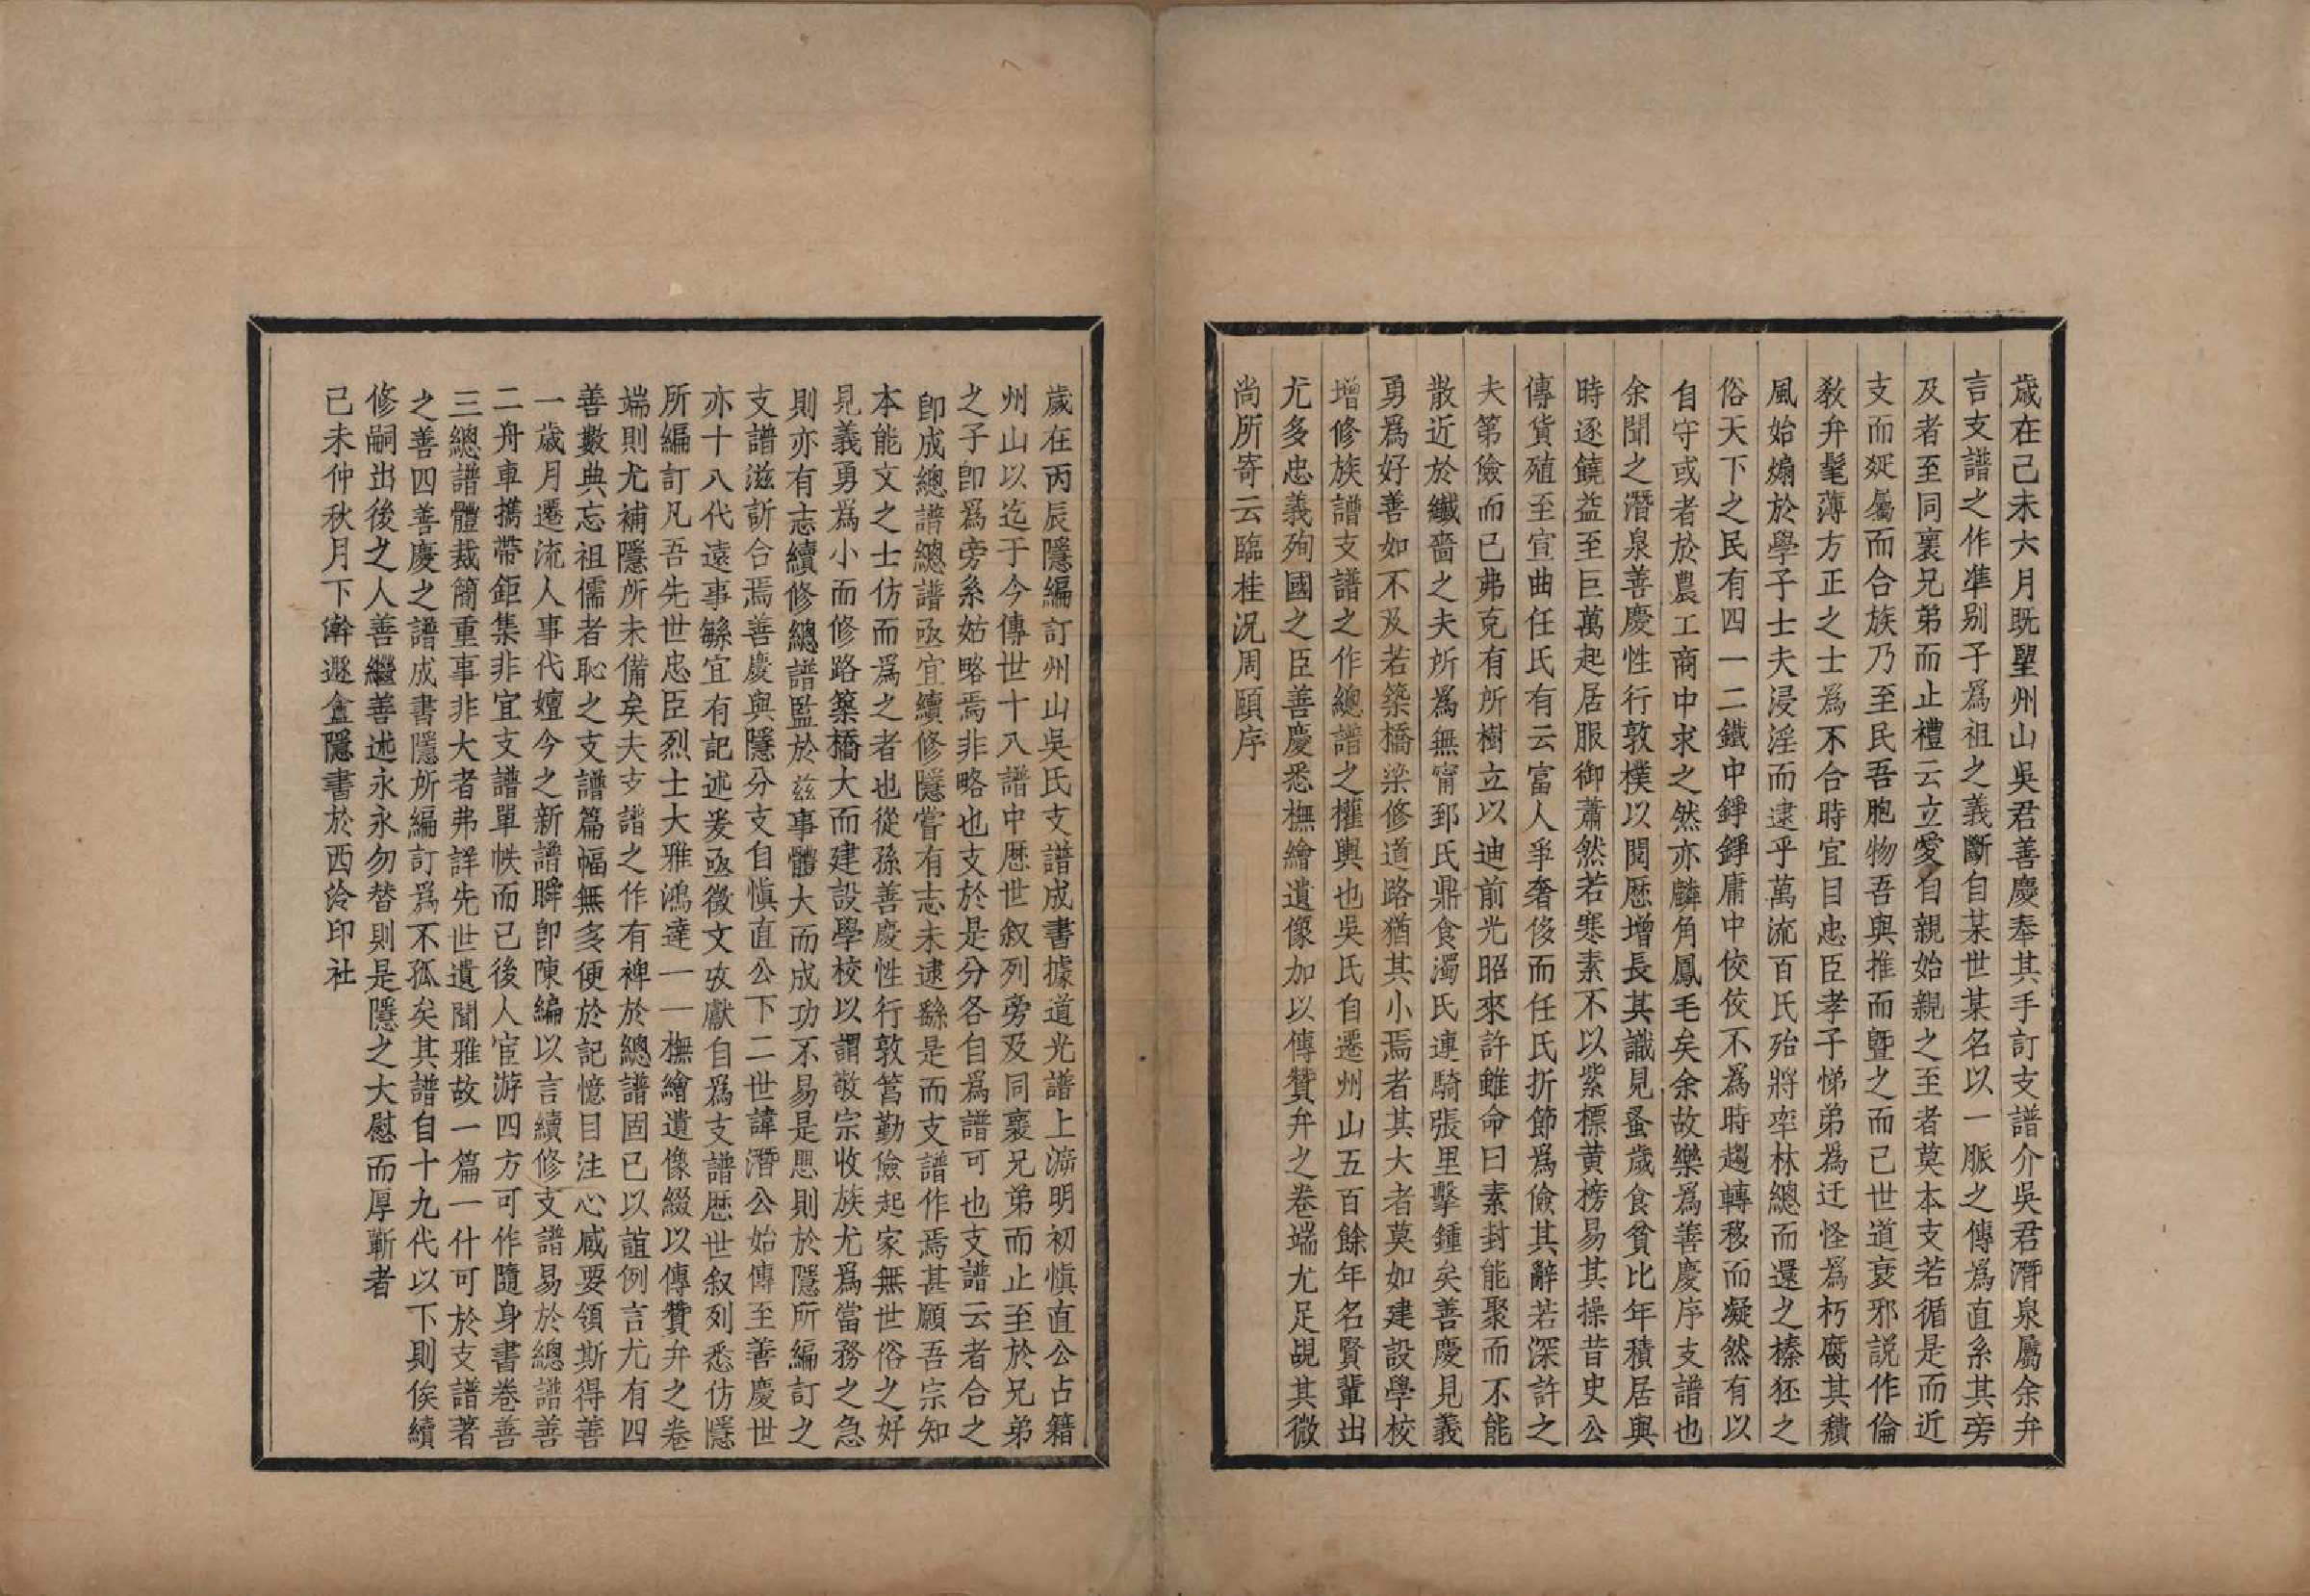 歲在己未六月既朢州山吳君善慶奉其手訂支譜介吳君潛泉屬余弁
言支譜之作準别子爲祖之義斷自某世某名以一脈之傳爲直系其旁
及者至同裏兄弟而止禮云立愛自親始親之至者莫本支若循是而近
支而娫屬而合族乃至民吾胞物吾與推而曁之而已世道衰邪説作倫
敎弁髦薄方正之士爲不合時宜目忠臣孝子悌弟爲迂怪爲朽腐其穨
風始煽於學子士夫浸淫而逮乎萬流百氏殆將率林總而還之榛狉之
俗天下之民有四一二鐵中錚錚庸中佼佼不爲時趨轉移而凝然有以
自守或者於農工商中求之然亦麟角鳳毛矣余故樂爲善慶序支譜也
余聞之潛泉善慶性行敦樸以閱歷增長其識見蚤歲食貧比年積居與
時逐饒益至巨萬起居服御蕭然若寒素不以紫標黄榜易其操昔史公
傳貨殖至宣曲任氏有云富人爭奢侈而任氏折節爲儉其辭若深許之
夫第儉而已弗克有所樹立以迪前光昭來許雖命曰素封能聚而不能
散近於纖嗇之夫所爲無甯郅氏鼎食濁氏連騎張里擊鍾矣善慶見義
勇爲好善如不及若築橋梁修道路猶其小焉者其大者莫如建設學校
增修族譜支譜之作總譜之權輿也吳氏自遷州山五百餘年名賢輩出
尤多忠義殉國之臣善慶悉橅繪遺像加以傳贊弁之卷端尤足覘其微
尚所寄云臨桂況周頤序
歲在丙辰隱編訂州山吳氏支譜成書據道光譜上泝明初愼直公占籍
州山以迄于今傳世十八譜中歷世叙列旁及同裏兄弟而止至於兄弟
之子卽爲旁系姑略焉非略也支於是分各自爲譜可也支譜云者合之
卽成總譜總譜亟宜續修隱嘗有志未逮繇是而支譜作焉甚願吾宗知
本能文之士仿而爲之者也從孫善慶性行敦篤勤儉起家無世俗之好
見義勇爲小而修路築橋大而建設學校以謂敬宗收族尤爲當務之急
則亦有志續修總譜監於兹事體大而成功不易是思則於隱所編訂之
支譜滋訢合焉善慶與隱分支自愼直公下二世諱潛公始傳至善慶世
亦十八代遠事緐宜有記述爰亟徵文攷獻自爲支譜歷世叙列悉仿隱
所編訂凡吾先世忠臣烈士大雅鴻達一一橅繪遺像綴以傳贊弁之卷
端則尤補隱所未備矣夫支譜之作有裨於總譜固已以誼例言尤有四
善數典忘祖儒者恥之支譜篇幅無多便於記憶目注心咸要領斯得善
一歲月遷流人事代嬗今之新譜瞬卽陳編以言續修支譜易於總譜善
二舟車攜帶鉅集非宜支譜單帙而已後人宦游四方可作隨身書卷善
三總譜體裁簡重事非大者弗詳先世遺聞雅故一篇一什可於支譜著
之善四善慶之譜成書隱所編訂爲不孤矣其譜自十九代以下則俟續
修嗣出後之人善繼善述永永勿替則是隱之大慰而厚蘄者
己未仲秋月下澣遯盦隱書於西泠印社